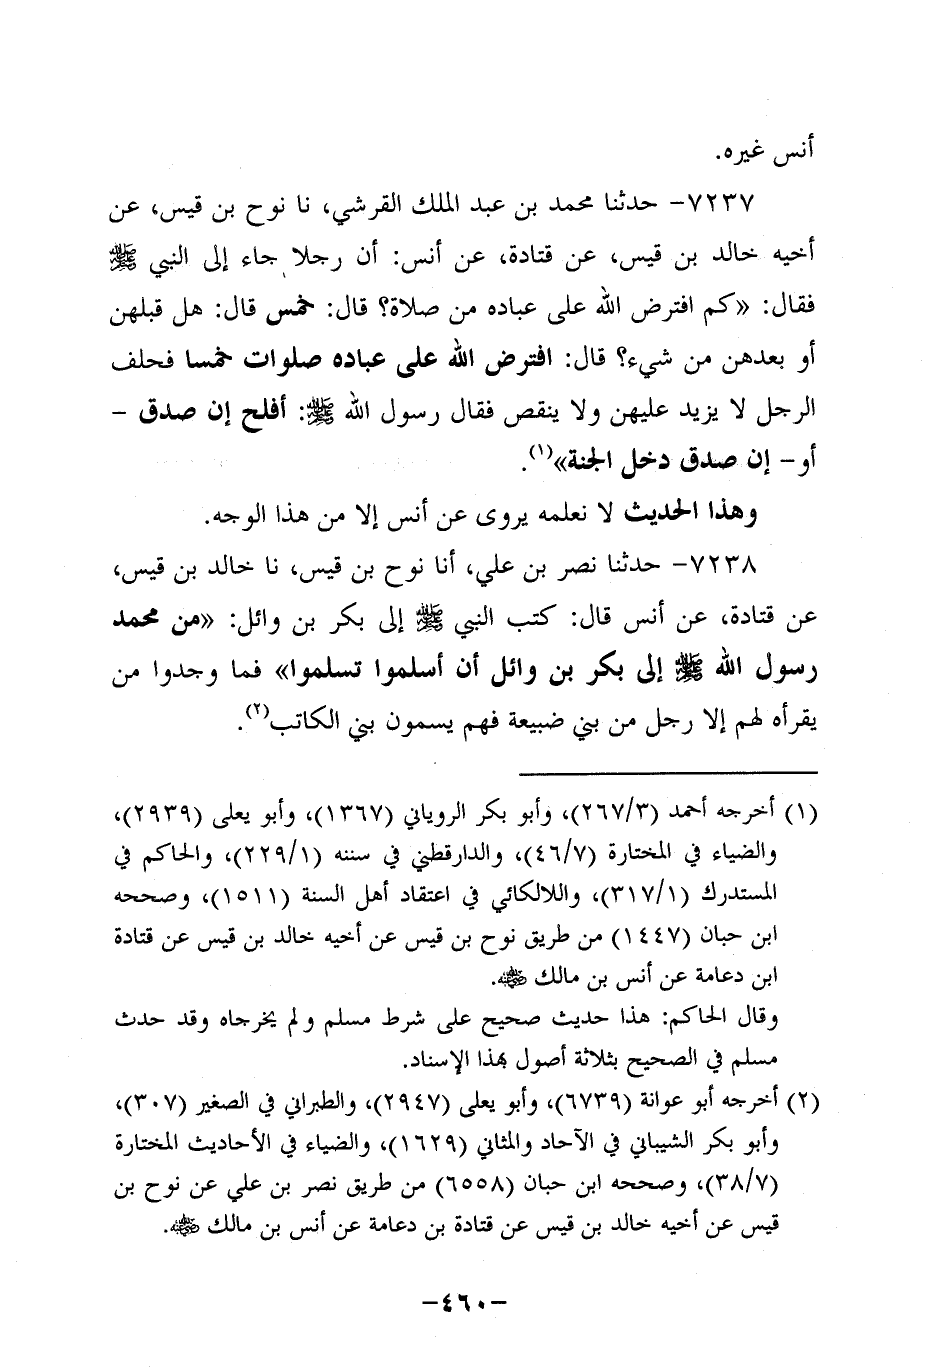 أنس غيره.
٧٢٣٧- حدثنا محمد بن عبد الملك القرشي، نا نوح بن قيس، عن
أخيه خالد بن قيس، عن قتادة، عن أنس: أن رجلا جاء إلى النبي ﷺ
فقال: «كم افترض الله على عباده من صلاة؟ قال: خمس قال: هل قبلهن
أو بعدهن من شيء؟ قال: افترض الله على عباده صلوات خمسا فحلف
الرجل لا يزيد عليهن ولا ينقص فقال رسول الله ﷺ: أفلح إن صدق -
أو- إن صدق دخل الجنة»(١).
وهذا الحديث لا نعلمه يروى عن أنس إلا من هذا الوجه.
٧٢٣٨- حدثنا نصر بن علي، أنا نوح بن قيس، نا خالد بن قيس،
عن قتادة، عن أنس قال: كتب النبي ﷺ إلى بكر بن وائل: «من محمد
رسول الله ﷺ إلى بكر بن وائل أن أسلموا تسلموا» فما وجدوا من
يقرأه لهم إلا رجل من بني ضبيعة فهم يسمون بني الكاتب(٢).
(١) أخرجه أحمد (٢٦٧/٣)، وأبو بكر الروياني (١٣٦٧)، وأبو يعلى (٢٩٣٩)،
والضياء في المختارة (٤٦/٧)، والدارقطني في سننه (٢٢٩/١)، والحاكم في
المستدرك (٣١٧/١)، واللالكائي في اعتقاد أهل السنة (١٥١١)، وصححه
ابن حبان (١٤٤٧) من طريق نوح بن قيس عن أخيه خالد بن قيس عن قتادة
ابن دعامة عن أنس بن مالك ﵁.
وقال الحاكم: هذا حديث صحيح على شرط مسلم ولم يخرجاه وقد حدث
مسلم في الصحيح بثلاثة أصول بهذا الإسناد.
(٢) أخرجه أبو عوانة (٦٧٣٩)، وأبو يعلى (٢٩٤٧)، والطبراني في الصغير (٣٠٧)،
وأبو بكر الشيباني في الآحاد والمثاني (١٦٢٩)، والضياء في الأحاديث المختارة
(٣٨/٧)، وصححه ابن حبان (٦٥٥٨) من طريق نصر بن علي عن نوح بن
قيس عن أخيه خالد بن قيس عن قتادة بن دعامة عن أنس بن مالك ﵁.
-٤٦٠-